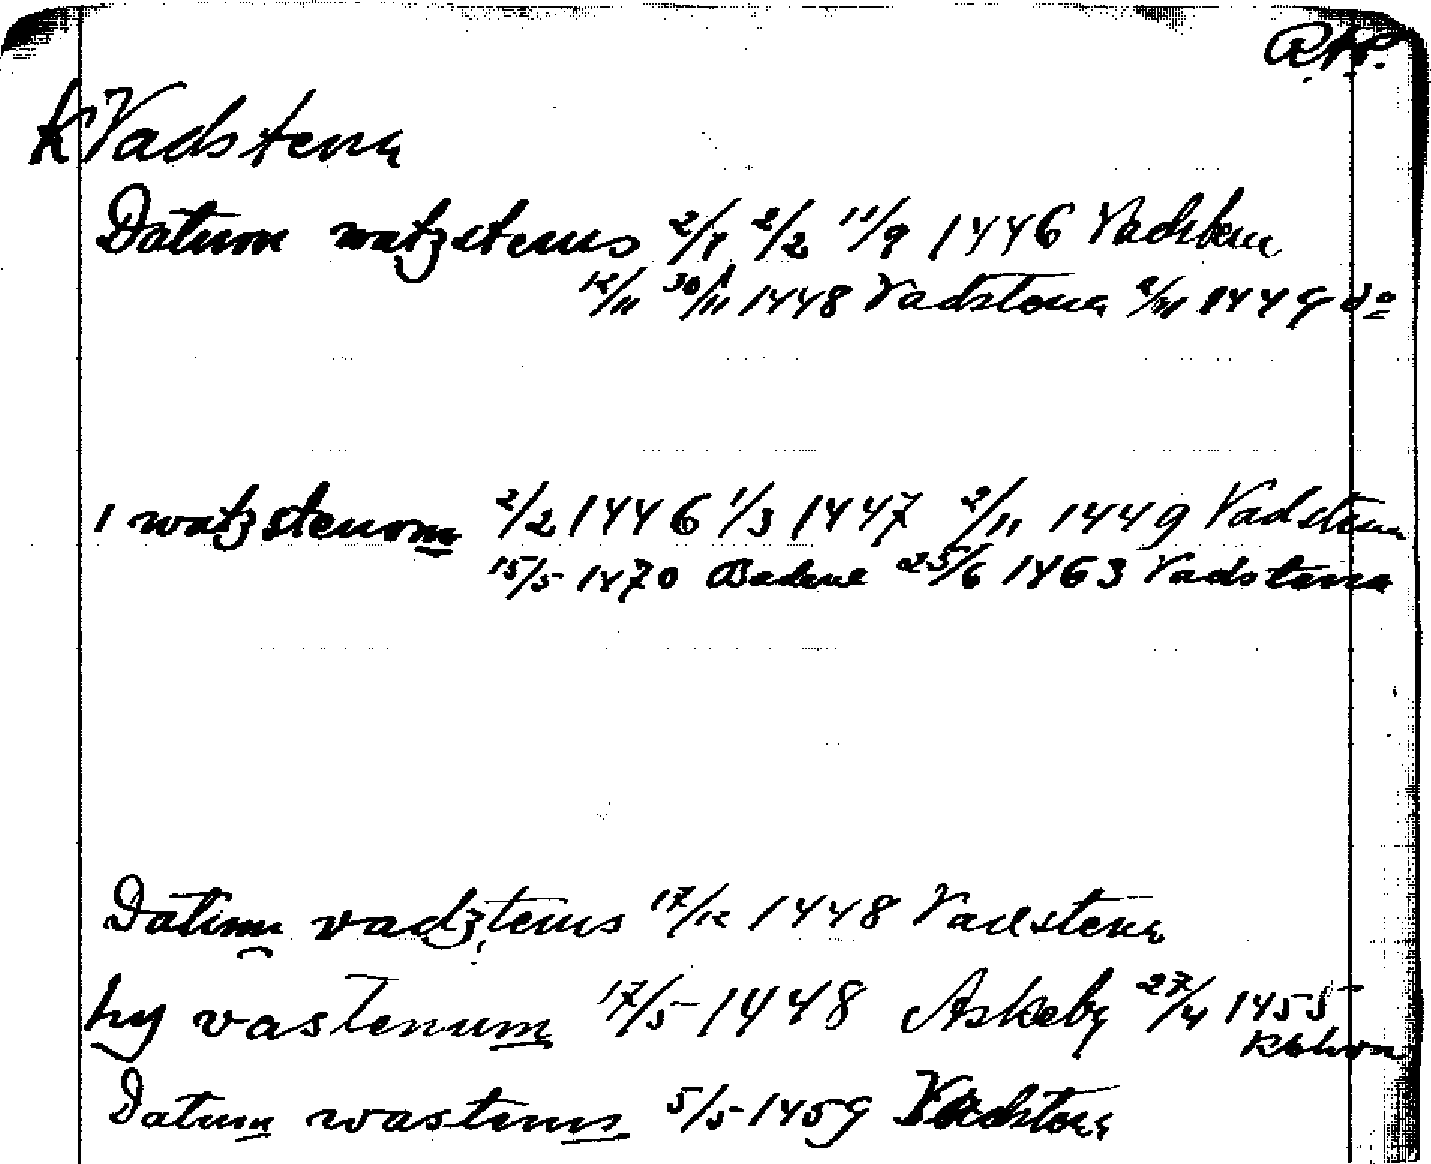 RAP.
K Vadstena
Datum watzstenis 2/1 2/2 11/9 1446 Vadstena
12/11 30/11 1448 Vadstena 2/11 1449 do
i watzstenom 2/2 1446 1/3 1447 2/11 1449 Vadstena
15/5 1470 25/6 1463 Vadstena
Datum vadztenis 17/12 1448 Vadstena
hy vastenum 17/5 1448 Askeby 27/4 1455
Datum wastenis 5/5 1459 Vadstena